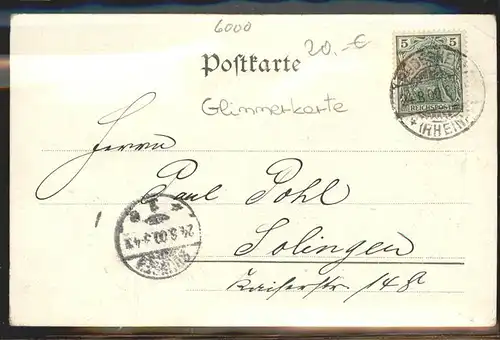 6000
20.-€
Postkarte
Glimmerkarte
5 5
REICHSPOST
(RHEIN)
Herrn
Paul Pohl
Solingen
Kaiserstr 148